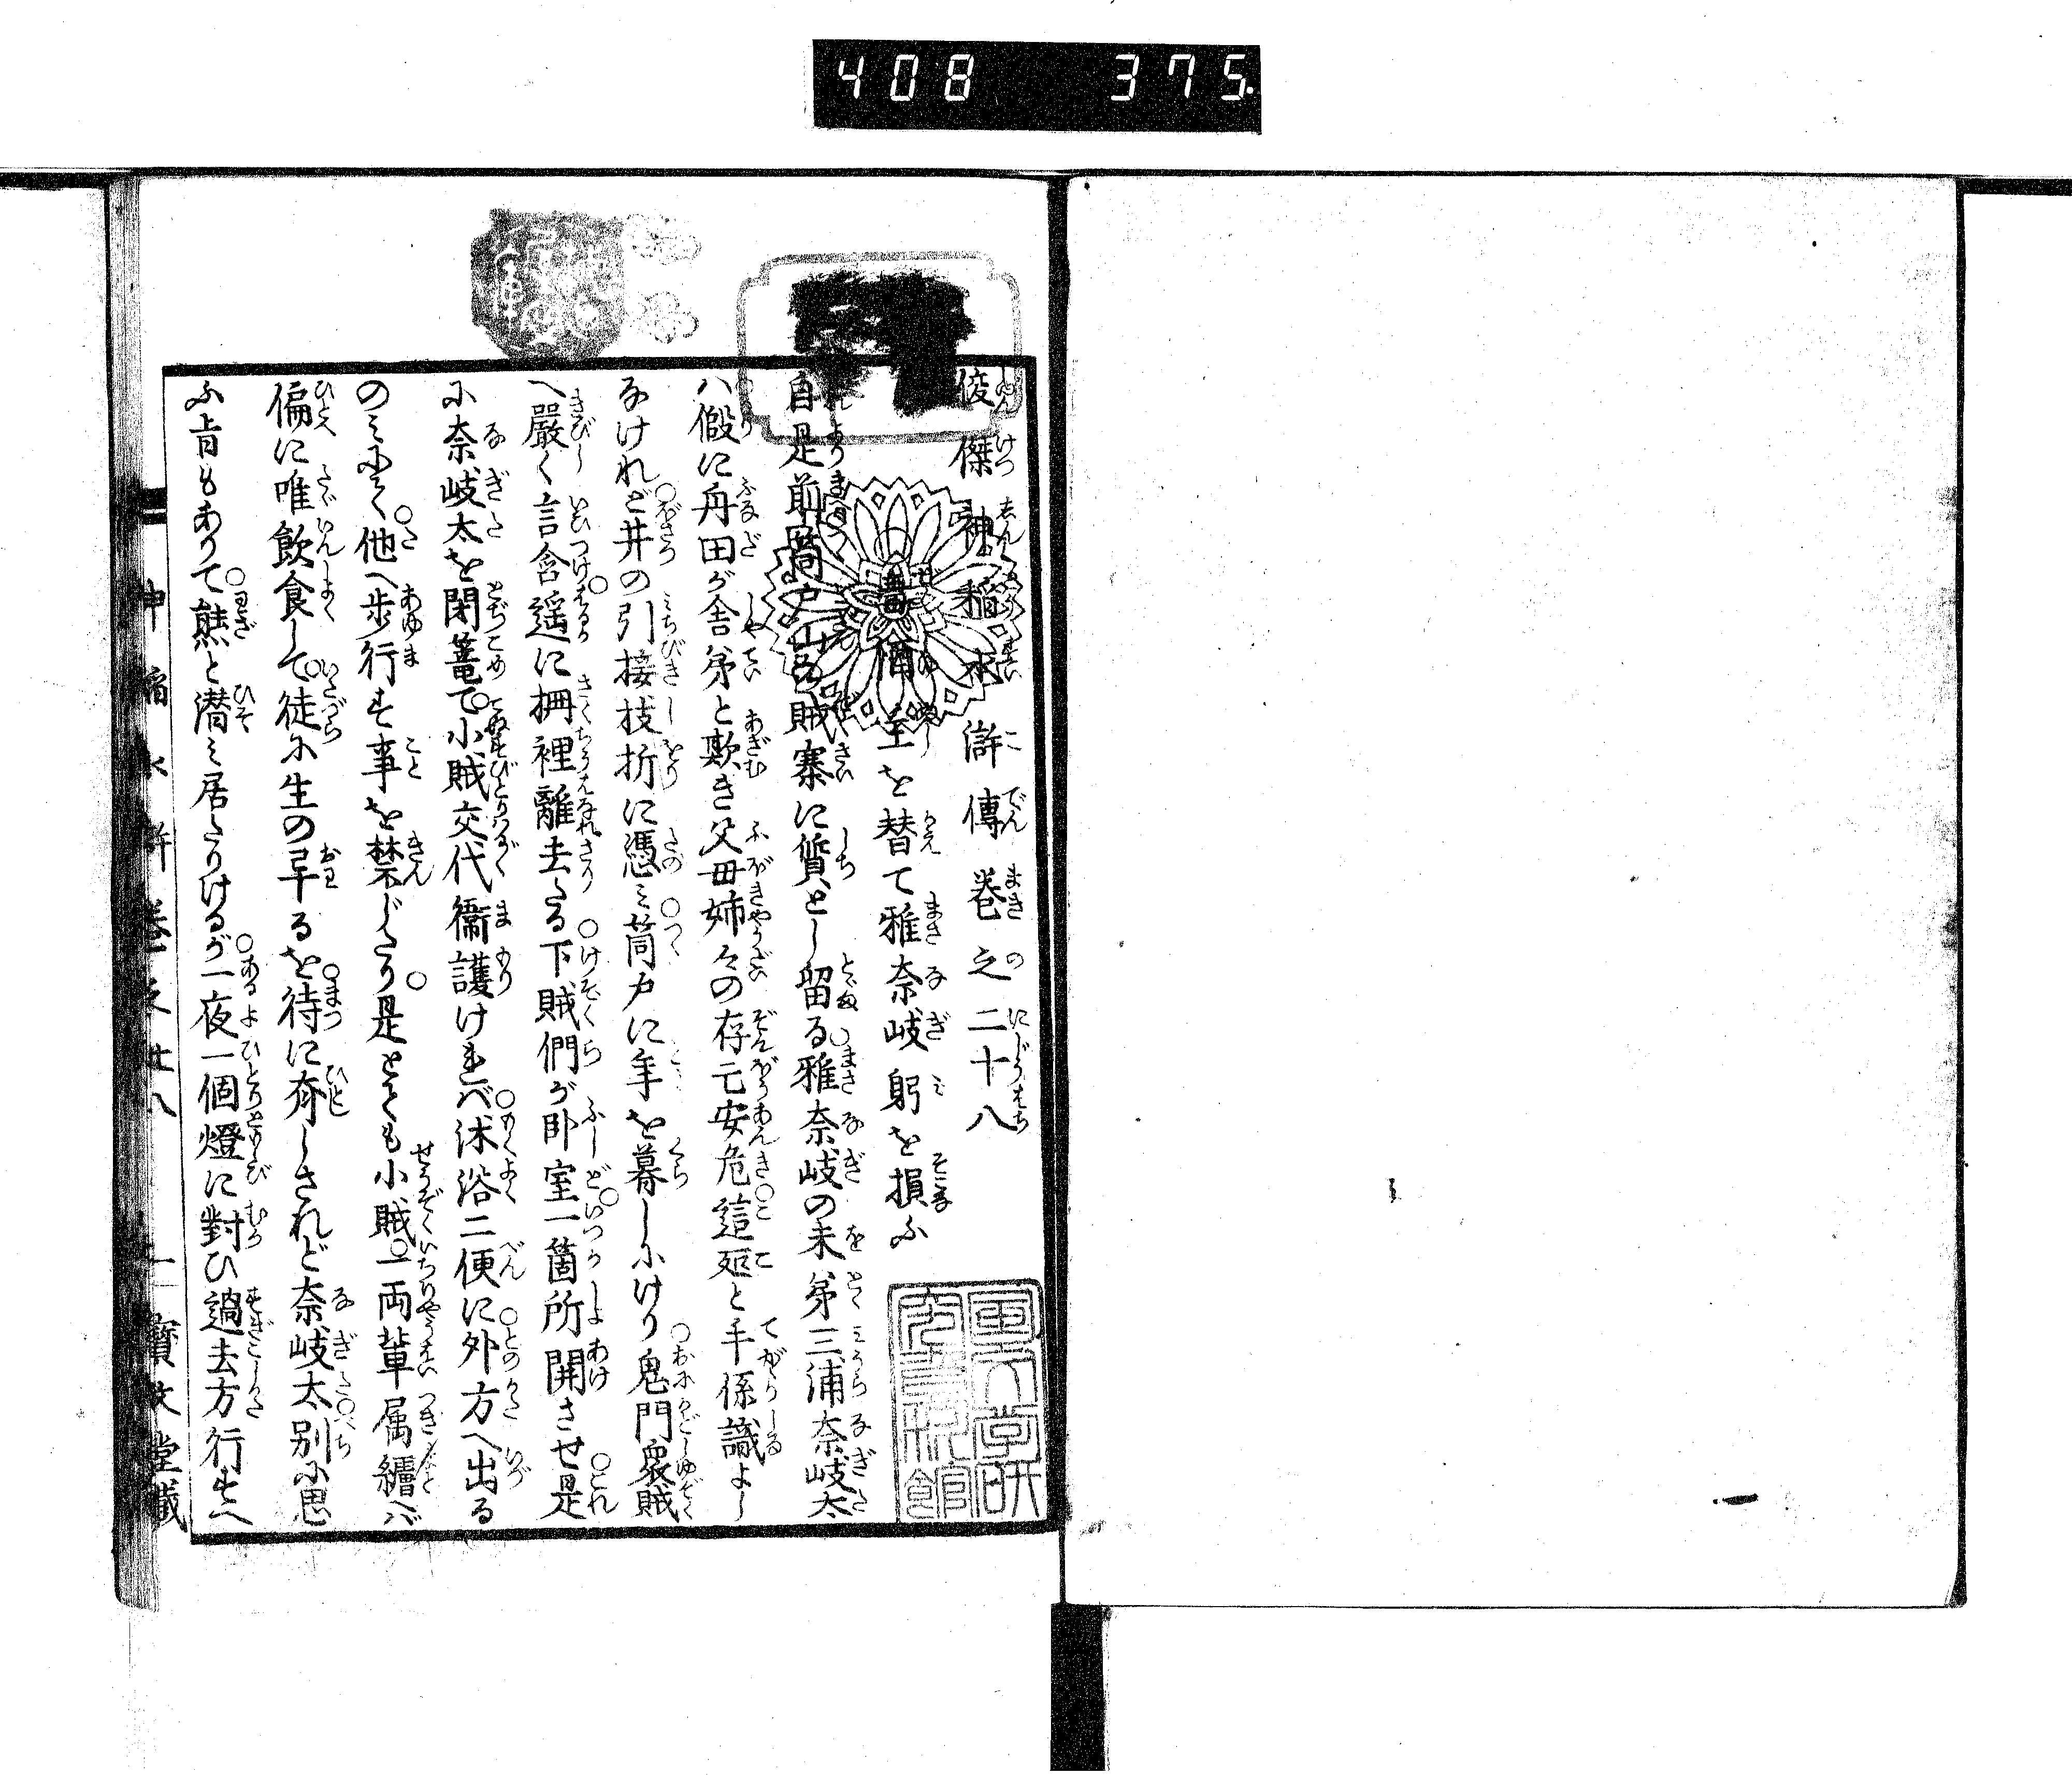 408 375.
俊傑神稲水滸傳巻之二十八
舊酒主を替て雅奈岐躬を損ふ
自是前筒戸山の賊寨に質とし留る雅奈岐の未弟三浦奈岐太
ハ假に舟田が舎弟と欺き父母姉々の存亡安危這延と手係識よし
なけれど井の引接枝折に憑ミ筒戸に年を暮しにけり鬼門衆賊
へ嚴く言含遥に柵裡離去たる下賊們が卧室一箇所開させ是
に奈岐太を閉篭て小賊交代衞護けれバ沐浴二便に外方へ出る
のミにて他へ歩行す事を禁じたり是とても小賊一両輩属纏バ
偏に唯飲食して徒に生の早るを待に斉しされど奈岐太別に思
ふ旨もありて態と潜ミ居たりけるが一夜一個燈に對ひ過去方行すへ
神稲水滸巻之廿八 一 寳文堂藏